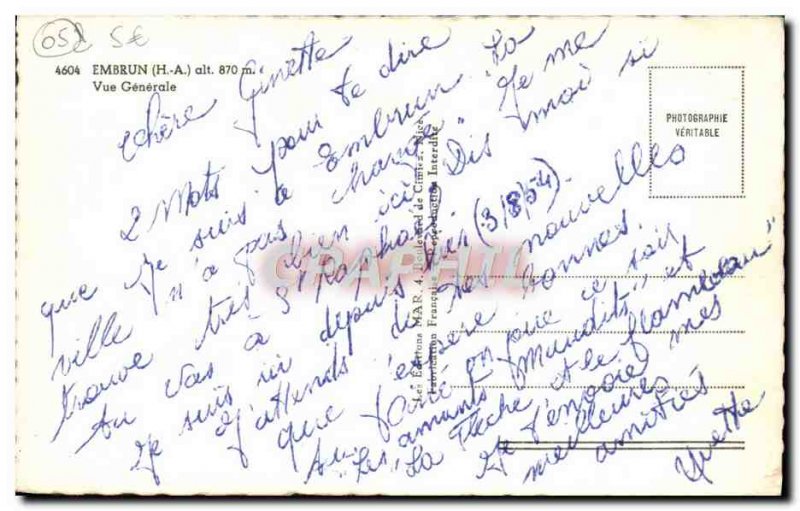 05
5€
4604 EMBRUN (H.-A.) alt. 870 m.
Vue Générale
PHOTOGRAPHIE
VÉRITABLE
Les Editions MAR, 4, Boulevard de Cimiez, Nice
Fabrication Française - Reproduction Interdite
CPAPHIL
Chère Ginette
2 Mots pour te dire
que je suis à Embrun. La
ville n'a pas "changé". Je me
trouve très bien ici. Dis moi si
tu vas à St Raphaël
Je suis ici depuis hier (3/8/54).
J'attends de tes nouvelles
que j'espère bonnes.
Au ciné on joue ce soir
"Les amants Maudits" et
"La Flèche et le flambeau"
Je t'envoie mes
meilleures
amitiés
Yvette